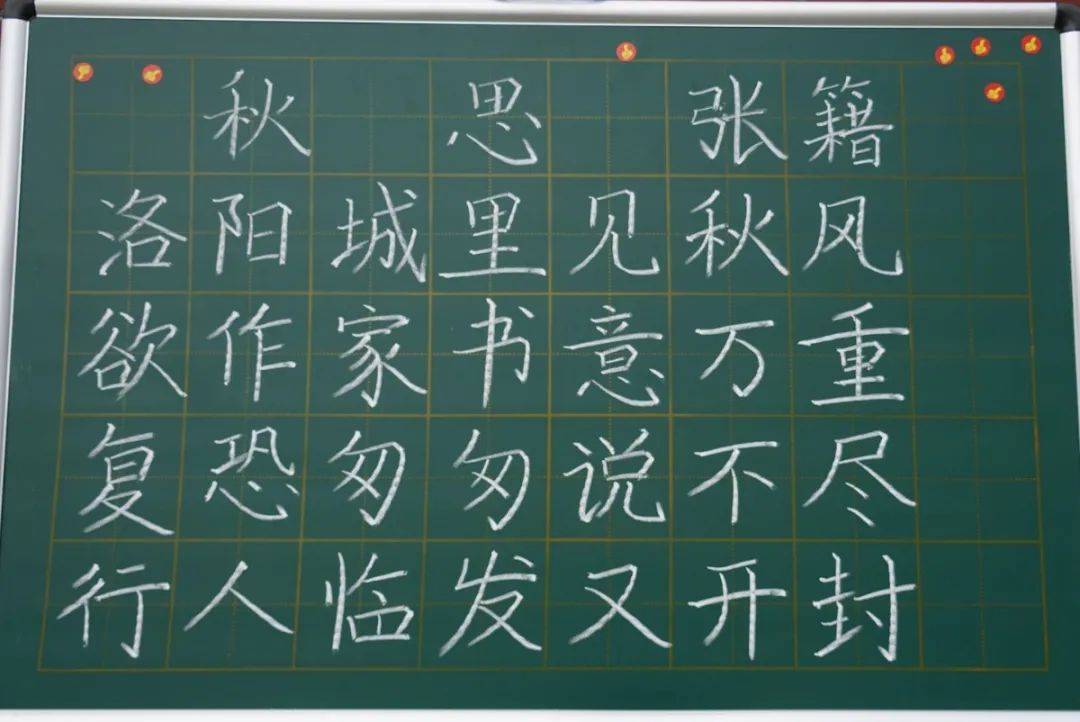 秋 思 张籍
洛阳城里见秋风
欲作家书意万重
复恐匆匆说不尽
行人临发又开封